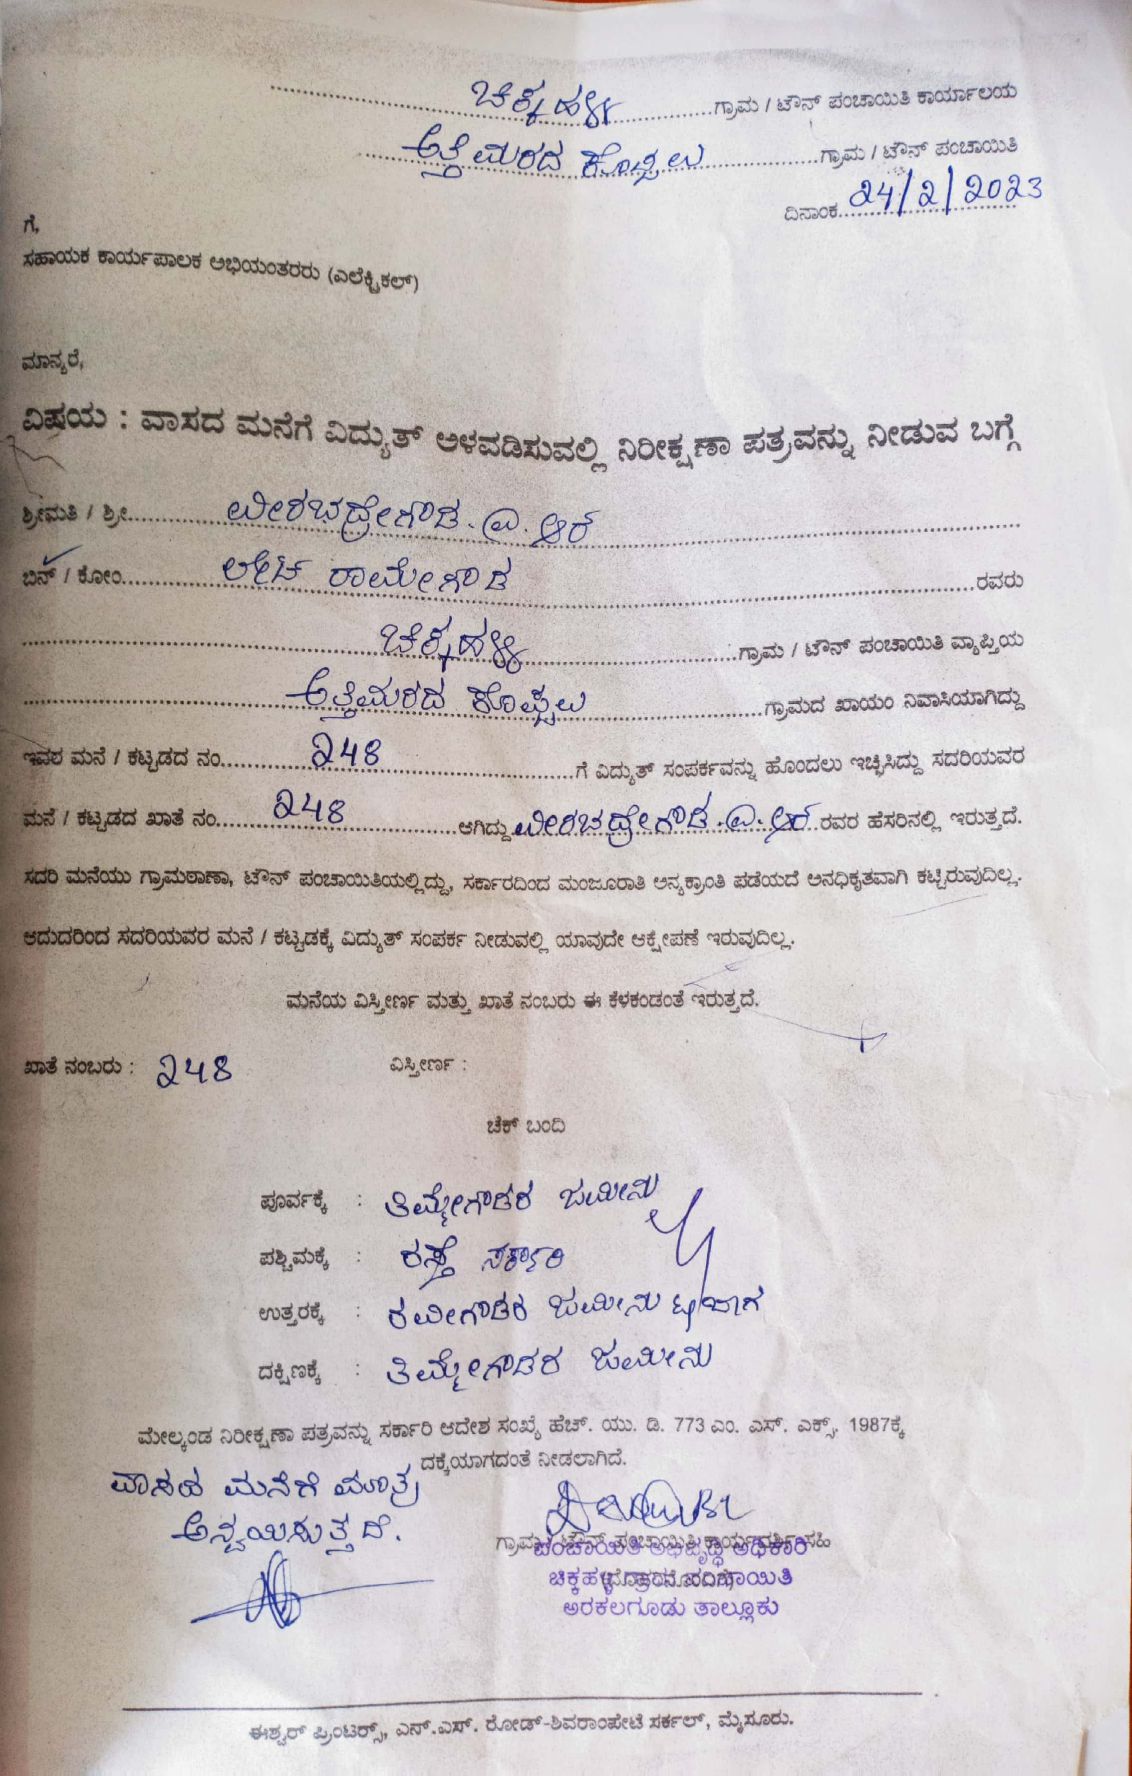 ಚಿಕ್ಕಹಳ್ಳಿ ಗ್ರಾಮ / ಟೌನ್ ಪಂಚಾಯಿತಿ ಕಾರ್ಯಾಲಯ
ಅತ್ತಿಮರದ ಕೊಪ್ಪಲು ಗ್ರಾಮ / ಟೌನ್ ಪಂಚಾಯಿತಿ
ದಿನಾಂಕ 24/2/2023
ಗೆ,
ಸಹಾಯಕ ಕಾರ್ಯಪಾಲಕ ಅಭಿಯಂತರರು (ಎಲೆಕ್ಟ್ರಿಕಲ್)
ಮಾನ್ಯರೆ,
ವಿಷಯ : ವಾಸದ ಮನೆಗೆ ವಿದ್ಯುತ್ ಅಳವಡಿಸುವಲ್ಲಿ ನಿರೀಕ್ಷಣಾ ಪತ್ರವನ್ನು ನೀಡುವ ಬಗ್ಗೆ
ಶ್ರೀಮತಿ / ಶ್ರೀ ವೀರಭದ್ರೇಗೌಡ. ಎ. ಆರ್
ಬಿನ್ / ಕೋಂ ಲೇಟ್ ರಾಮೇಗೌಡ ರವರು
ಚಿಕ್ಕಹಳ್ಳಿ ಗ್ರಾಮ / ಟೌನ್ ಪಂಚಾಯಿತಿ ವ್ಯಾಪ್ತಿಯ
ಅತ್ತಿಮರದ ಕೊಪ್ಪಲು ಗ್ರಾಮದ ಖಾಯಂ ನಿವಾಸಿಯಾಗಿದ್ದು
ಇವರ ಮನೆ / ಕಟ್ಟಡದ ನಂ. 248 ಗೆ ವಿದ್ಯುತ್ ಸಂಪರ್ಕವನ್ನು ಹೊಂದಲು ಇಚ್ಛಿಸಿದ್ದು ಸದರಿಯವರ
ಮನೆ / ಕಟ್ಟಡದ ಖಾತೆ ನಂ. 248 ಆಗಿದ್ದು ವೀರಭದ್ರೇಗೌಡ. ಎ. ಆರ್ ರವರ ಹೆಸರಿನಲ್ಲಿ ಇರುತ್ತದೆ.
ಸದರಿ ಮನೆಯು ಗ್ರಾಮಠಾಣಾ, ಟೌನ್ ಪಂಚಾಯಿತಿಯಲ್ಲಿದ್ದು, ಸರ್ಕಾರದಿಂದ ಮಂಜೂರಾತಿ ಅನ್ಯಕ್ರಾಂತಿ ಪಡೆಯದೆ ಅನಧಿಕೃತವಾಗಿ ಕಟ್ಟಿರುವುದಿಲ್ಲ.
ಆದುದರಿಂದ ಸದರಿಯವರ ಮನೆ / ಕಟ್ಟಡಕ್ಕೆ ವಿದ್ಯುತ್ ಸಂಪರ್ಕ ನೀಡುವಲ್ಲಿ ಯಾವುದೇ ಆಕ್ಷೇಪಣೆ ಇರುವುದಿಲ್ಲ.
ಮನೆಯ ವಿಸ್ತೀರ್ಣ ಮತ್ತು ಖಾತೆ ನಂಬರು ಈ ಕೆಳಕಂಡಂತೆ ಇರುತ್ತದೆ.
ಖಾತೆ ನಂಬರು : 248 ವಿಸ್ತೀರ್ಣ :
ಚೆಕ್ ಬಂದಿ
ಪೂರ್ವಕ್ಕೆ : ತಿಮ್ಮೇಗೌಡರ ಜಮೀನು
ಪಶ್ಚಿಮಕ್ಕೆ : ರಸ್ತೆ ಸರ್ಕಾರಿ
ಉತ್ತರಕ್ಕೆ : ರವೀಗೌಡರ ಜಮೀನು
ದಕ್ಷಿಣಕ್ಕೆ : ತಿಮ್ಮೇಗೌಡರ ಜಮೀನು
ಮೇಲ್ಕಂಡ ನಿರೀಕ್ಷಣಾ ಪತ್ರವನ್ನು ಸರ್ಕಾರಿ ಆದೇಶ ಸಂಖ್ಯೆ ಹೆಚ್. ಯು. ಡಿ. 773 ಎಂ. ಎಸ್. ಎಕ್ಸ್. 1987ಕ್ಕೆ
ದಕ್ಕೆಯಾಗದಂತೆ ನೀಡಲಾಗಿದೆ.
ವಾಸದ ಮನೆಗೆ ಮಾತ್ರ
ಅನ್ವಯಿಸುತ್ತದೆ.
ಗ್ರಾಮ / ಟೌನ್ ಪಂಚಾಯಿತಿ ಕಾರ್ಯದರ್ಶಿ ಸಹಿ
ಪಂಚಾಯಿತಿ ಅಭಿವೃದ್ಧಿ ಅಧಿಕಾರಿ
ಚಿಕ್ಕಹಳ್ಳಿ ಗ್ರಾಮ ಪಂಚಾಯಿತಿ
ಅರಕಲಗೂಡು ತಾಲ್ಲೂಕು
ಈಶ್ವರ್ ಪ್ರಿಂಟರ್ಸ್, ಎನ್.ಎಸ್. ರೋಡ್-ಶಿವರಾಂಪೇಟೆ ಸರ್ಕಲ್, ಮೈಸೂರು.